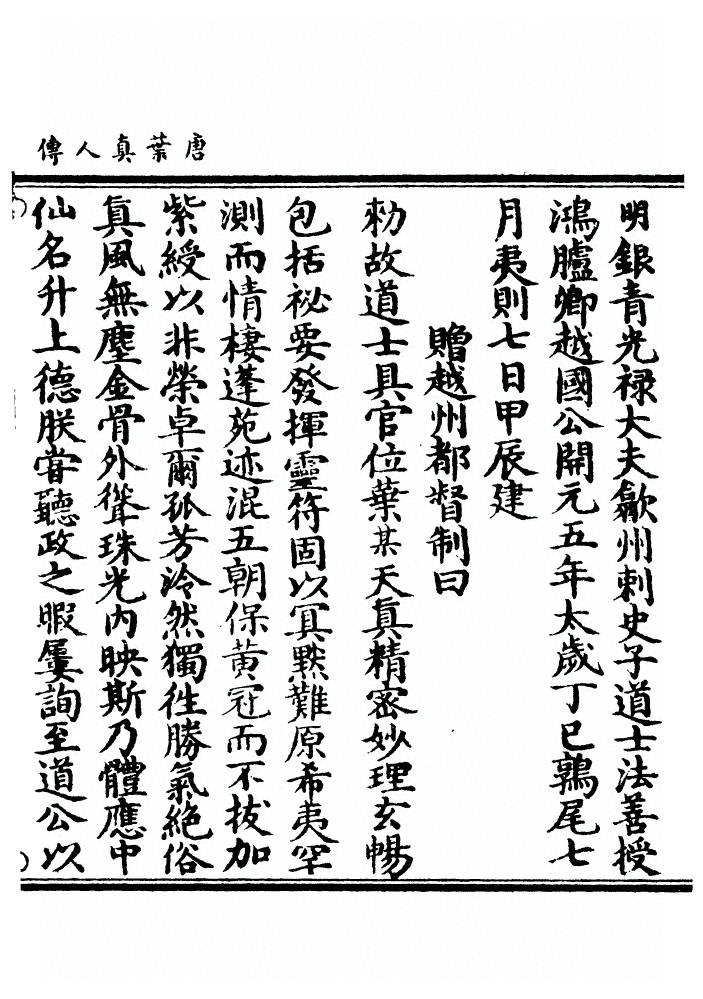 唐葉真人傳
明銀青光祿大夫歙州刺史子道士法善授
鴻臚卿越國公開元五年太歲丁巳鶉尾七
月夷則七日甲辰建
贈越州都督制曰
勑故道士具官位葉某天真精密妙理玄暢
包括祕要發揮靈符固以冥黙難原希夷罕
測而情棲蓬苑迹混五朝保黃冠而不拔加
紫綬以非榮卓爾孤芳泠然獨徃勝氣絶俗
真風無塵金骨外聳珠光內映斯乃體應中
仙名升上德朕甞聽政之暇屢詢至道公以